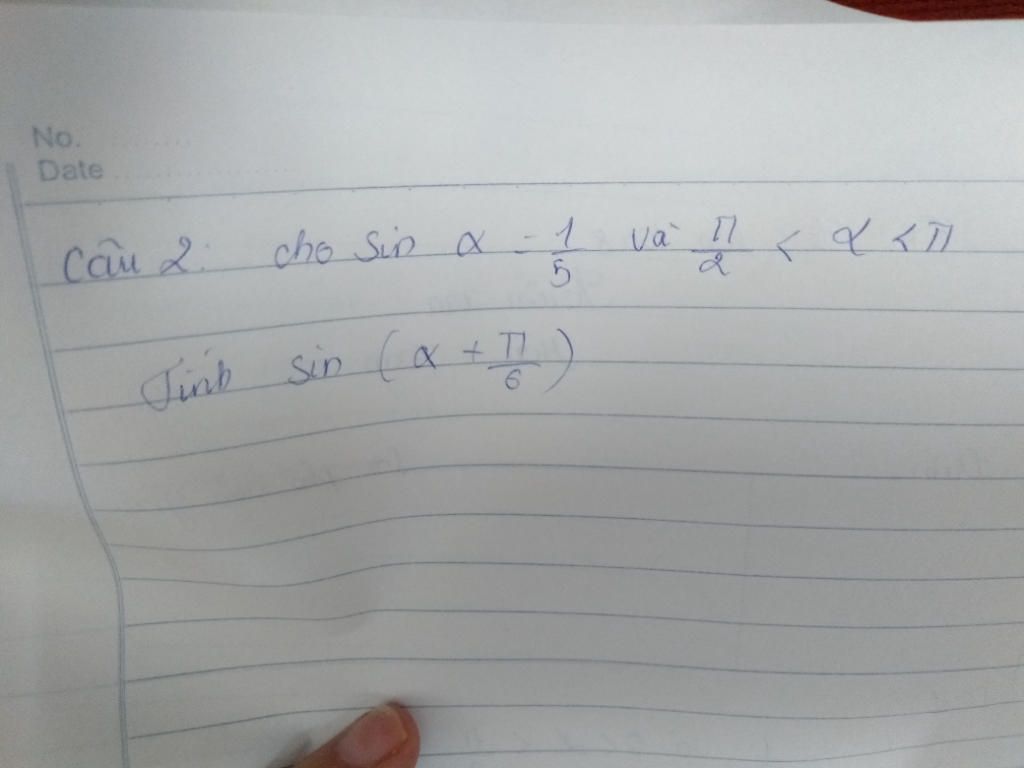 No. ..........
Date ....................
Câu 2: cho sin α = 1/5 và π/2 < α < π
Tính sin (α + π/6)